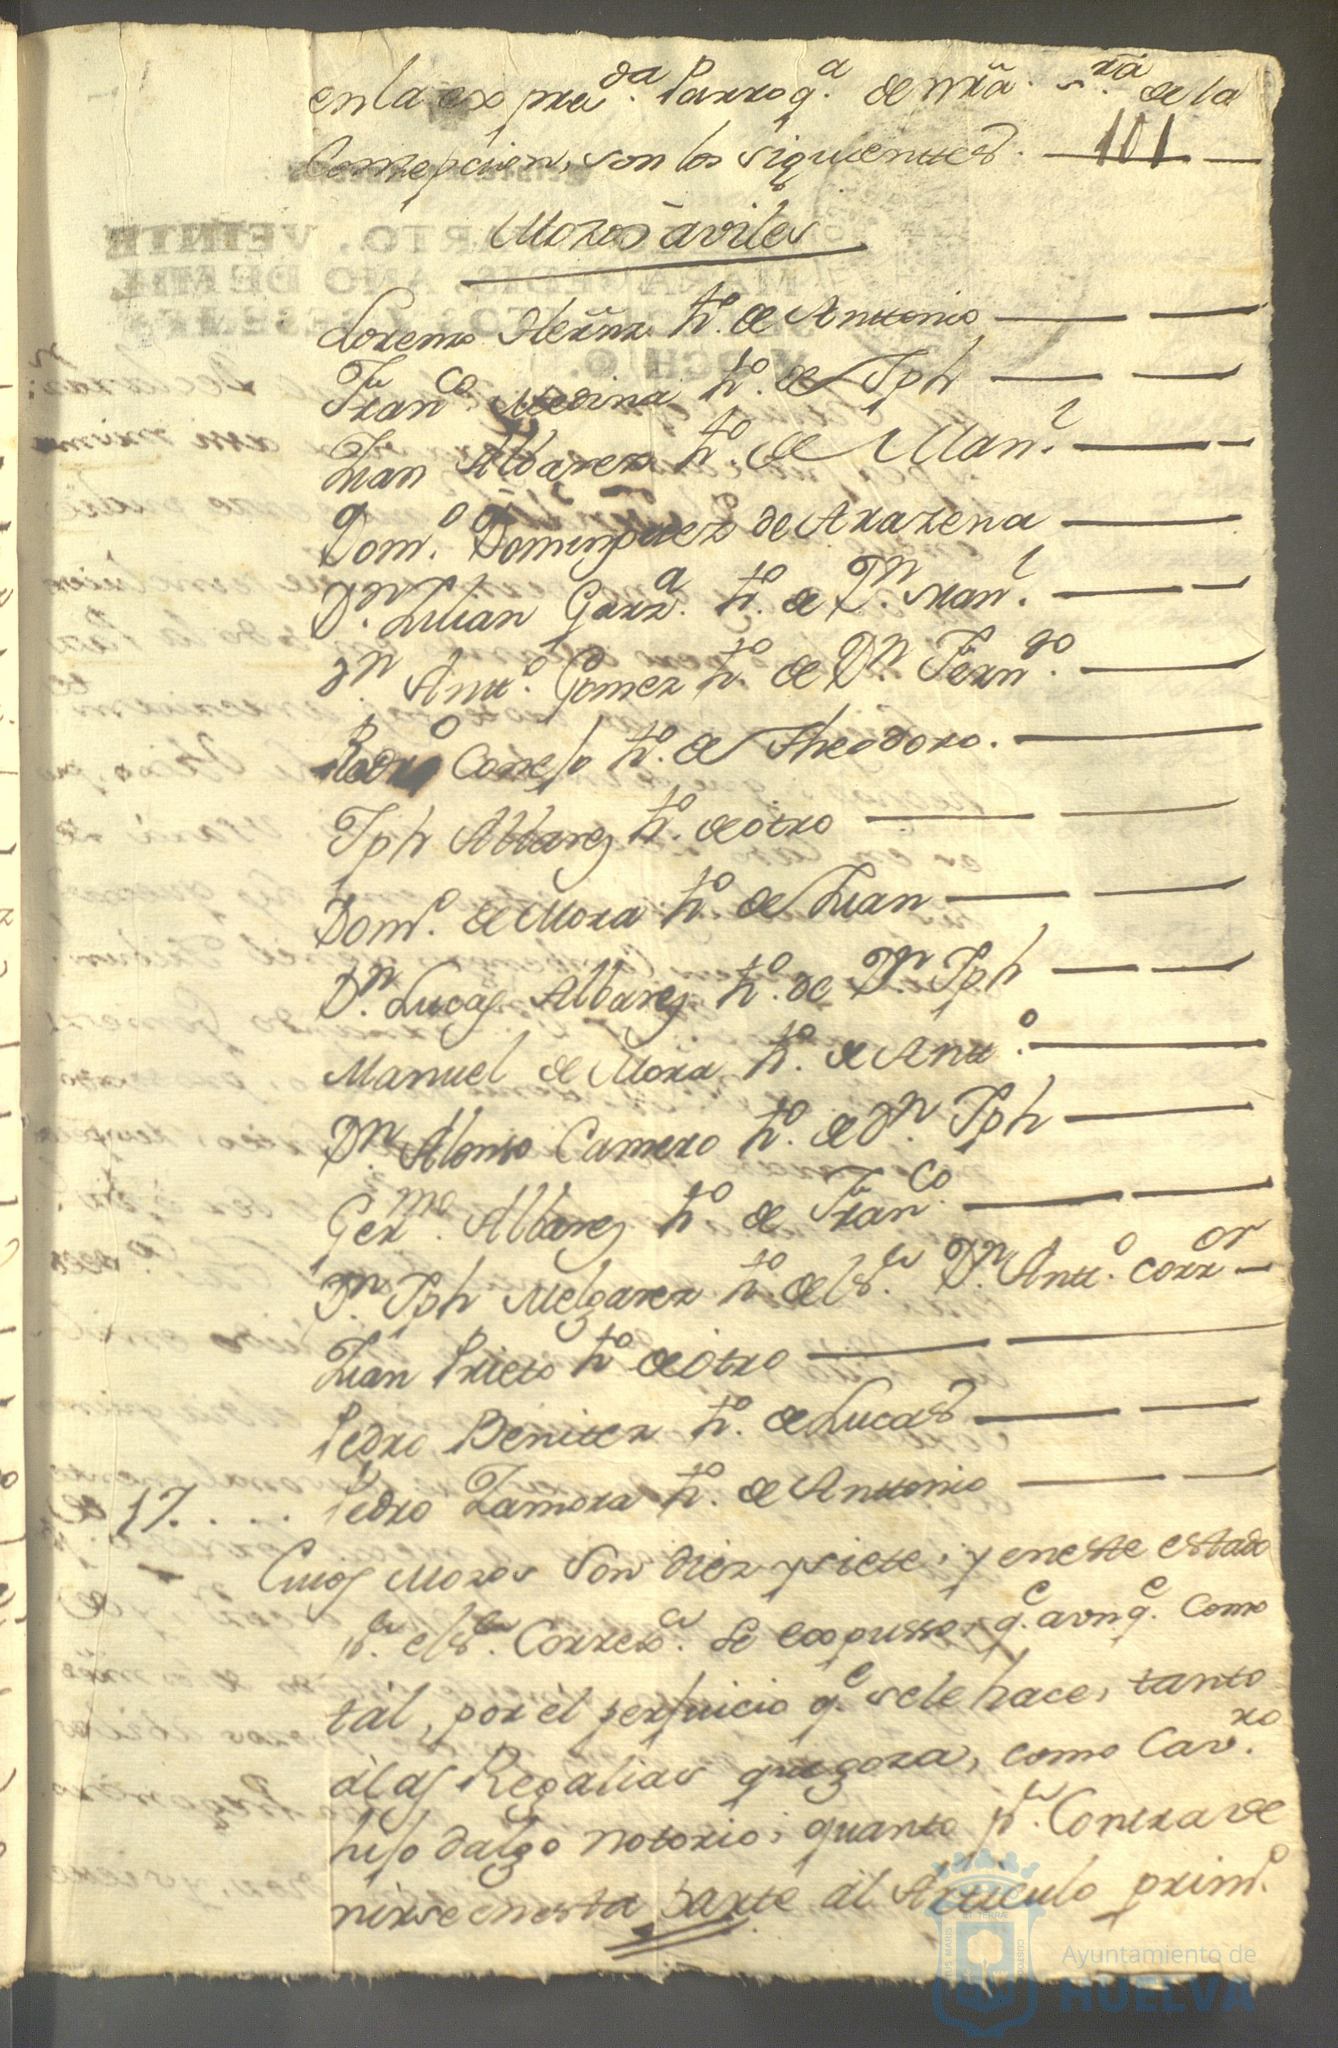 en la expresda. Parroqa. de nrã. sra. de la
Consepcion, son los siguienttes. 101
Mozos àviles
Lorenzo Hernz ho. de Anttonio
Franco. Medina ho. de Jph
Juan Albarez ho. de Manl.
Domo. Dominguez de Arazena
Dn. Julian Garza. ho. de Dn. Manl.
Dn. Antto. Gomez ho. de Dn. Ferndo.
Pedro Conejo ho. de Theodoro.
Jph Albarez ho. de òtro
Domo. de Mora ho. de Juan
Dn. Lucas Albarez ho. de Dn. Jph
Manuel de Mora ho. de Antto.
Dn. Alonso Camero ho. de Dn. Jph
Germo. Albarez ho. de Franco.
Dn. Jph Melgarez ho. del Sr. Dn. Antto. Corror
Juan Prieto ho. de otro
Pedro Benitez ho. de Lucas
17.... Pedro Zamora ho. de Anttonio
Cuios Mozos son diez y siete, y en este estado
pr. el Sr. Corregr. se expusso, qe. avnqe. como
tàl, por èl perjuicio qe. se le hace, tanto
à las Regalias que goza, como Cavro.
hijo dalgo notorio; quanto pr. Contrave
nirse en esta parte àl Articulo primo.
Ayuntamiento de
HUELVA